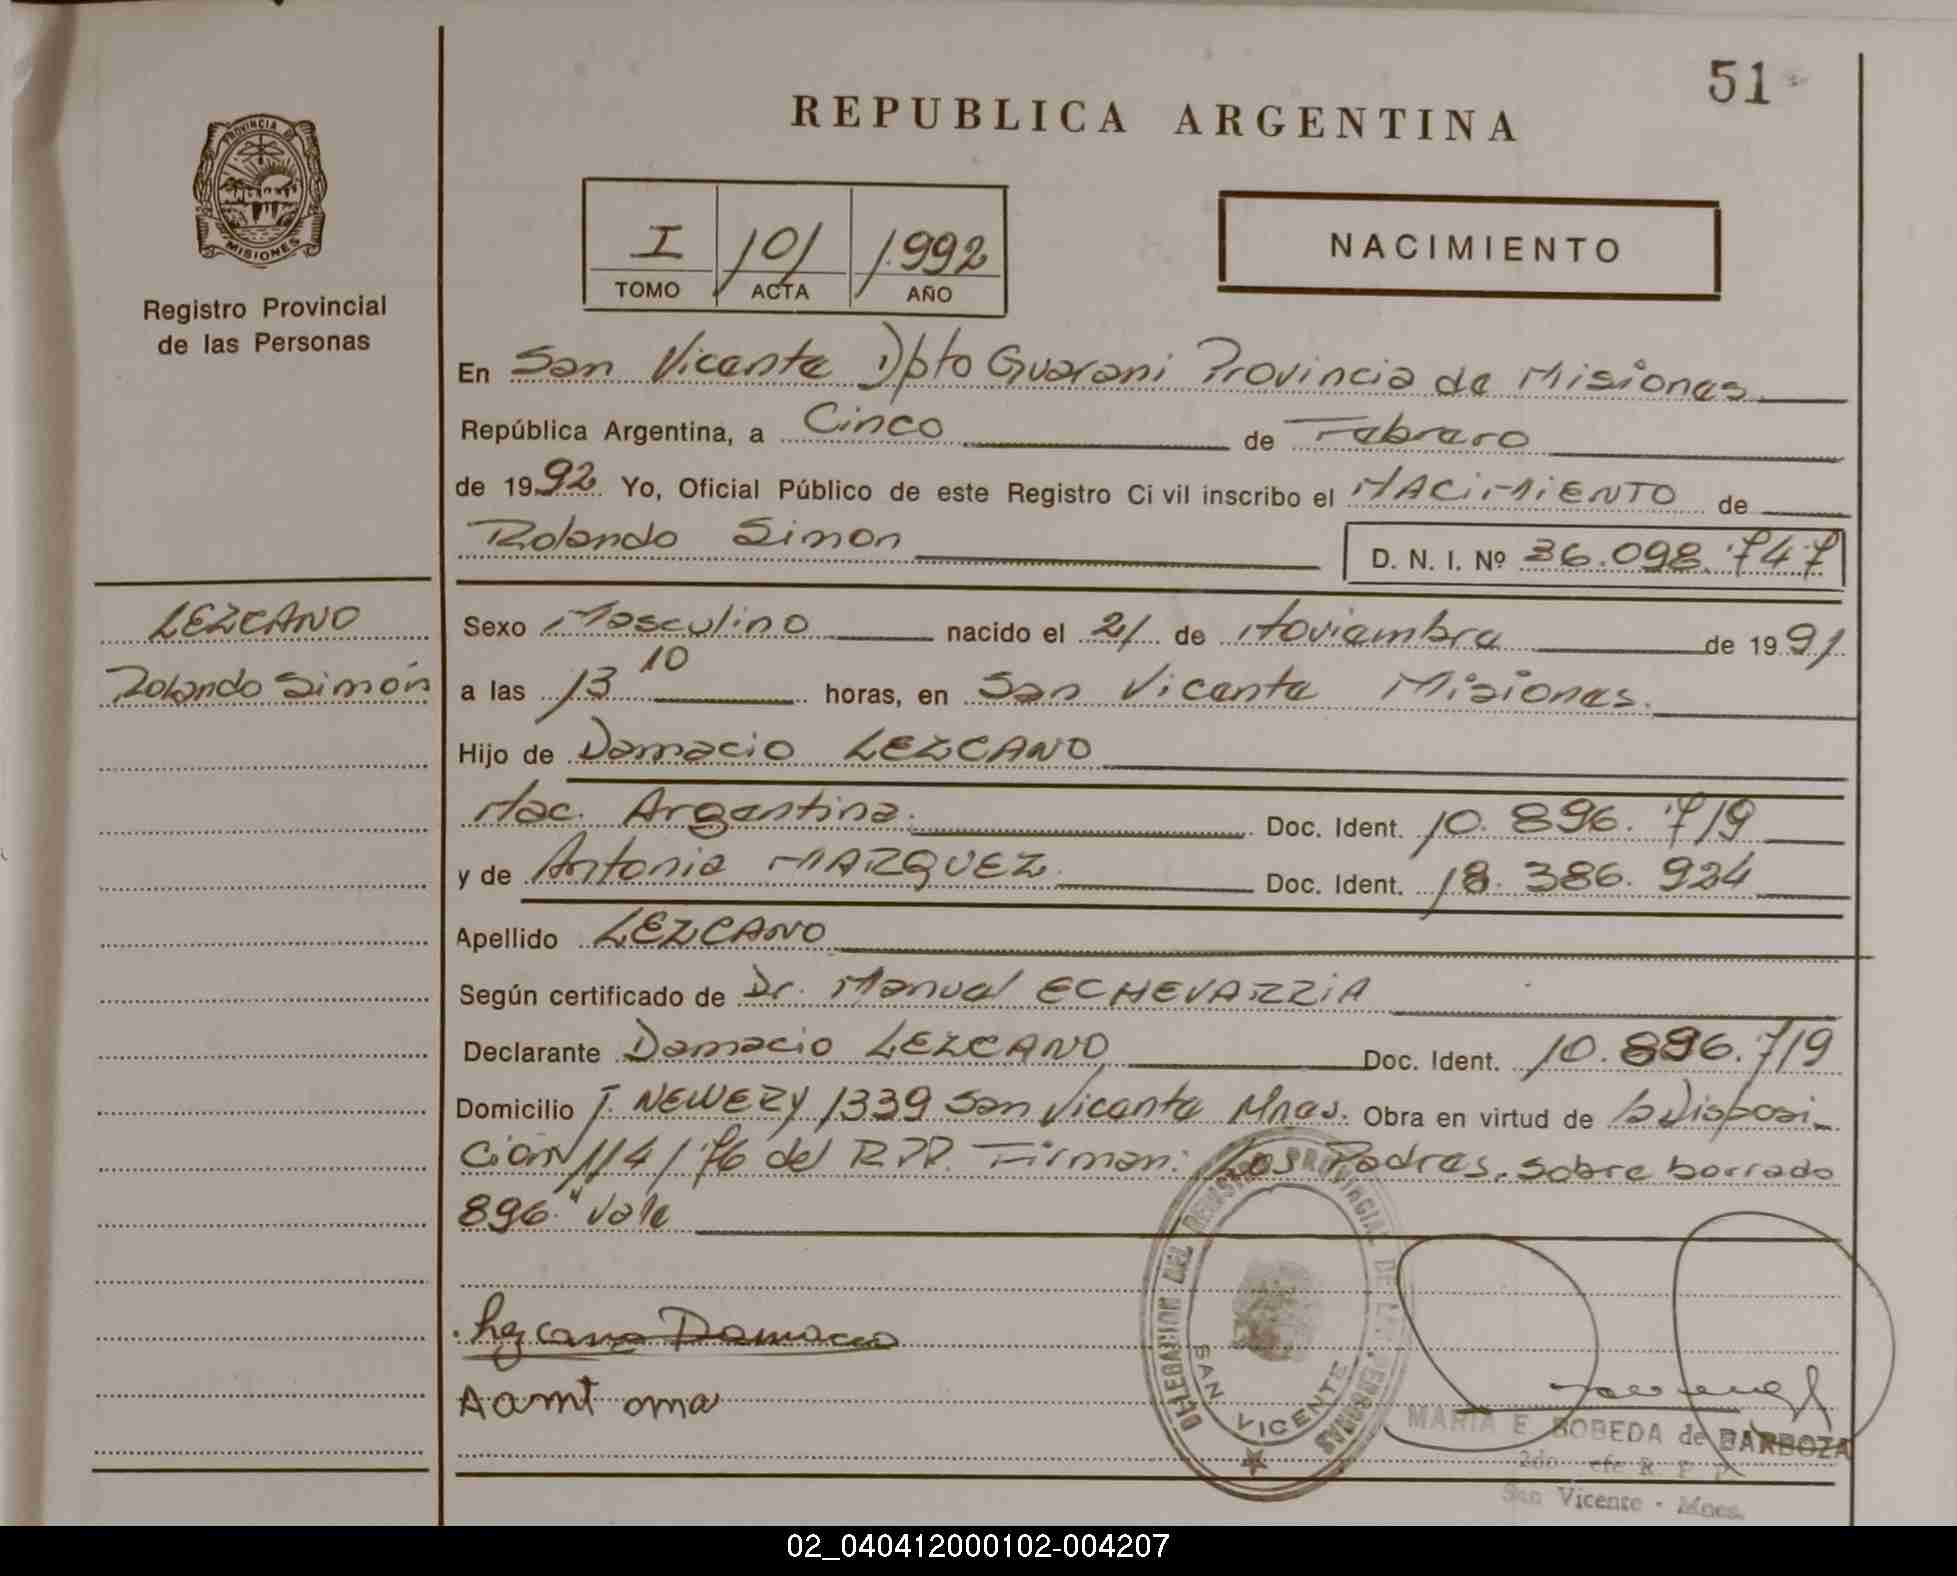 51
REPUBLICA ARGENTINA
PROVINCIA DE
MISIONES
Registro Provincial
de las Personas
I 101 1.992
TOMO ACTA AÑO
NACIMIENTO
En San Vicente Dpto Guarani Provincia de Misiones
República Argentina, a Cinco de Febrero
de 1992 Yo, Oficial Público de este Registro Ci vil inscribo el NACIMIENTO de
Rolando Simon D. N. I. Nº 36.098.747
LEZCANO
Rolando Simón
Sexo Masculino nacido el 21 de Noviembre de 1991
a las 13 10 horas, en San Vicente Misiones.
Hijo de Damacio LEZCANO
Nac. Argentina. Doc. Ident. 10.896.719
y de Antonia MARQUEZ Doc. Ident. 18.386.924
Apellido LEZCANO
Según certificado de Dr. Manuel ECHEVARRIA
Declarante Damacio LEZCANO Doc. Ident. 10.896.719
Domicilio J. NEWERY 1339 San Vicente Mnes. Obra en virtud de la Disposi-
ción 114/76 del R.P.P. Firman: Los Padres. Sobre borrado
896." Vale
Lezcano Damacio
Aamt oma
DELEGACION DEL REGISTRO PROVINCIAL DE LAS PERSONAS
SAN VICENTE
MARIA E. BOBEDA de BARBOZA
2do. efe R. P. P.
San Vicente - Mnes.
02_040412000102-004207